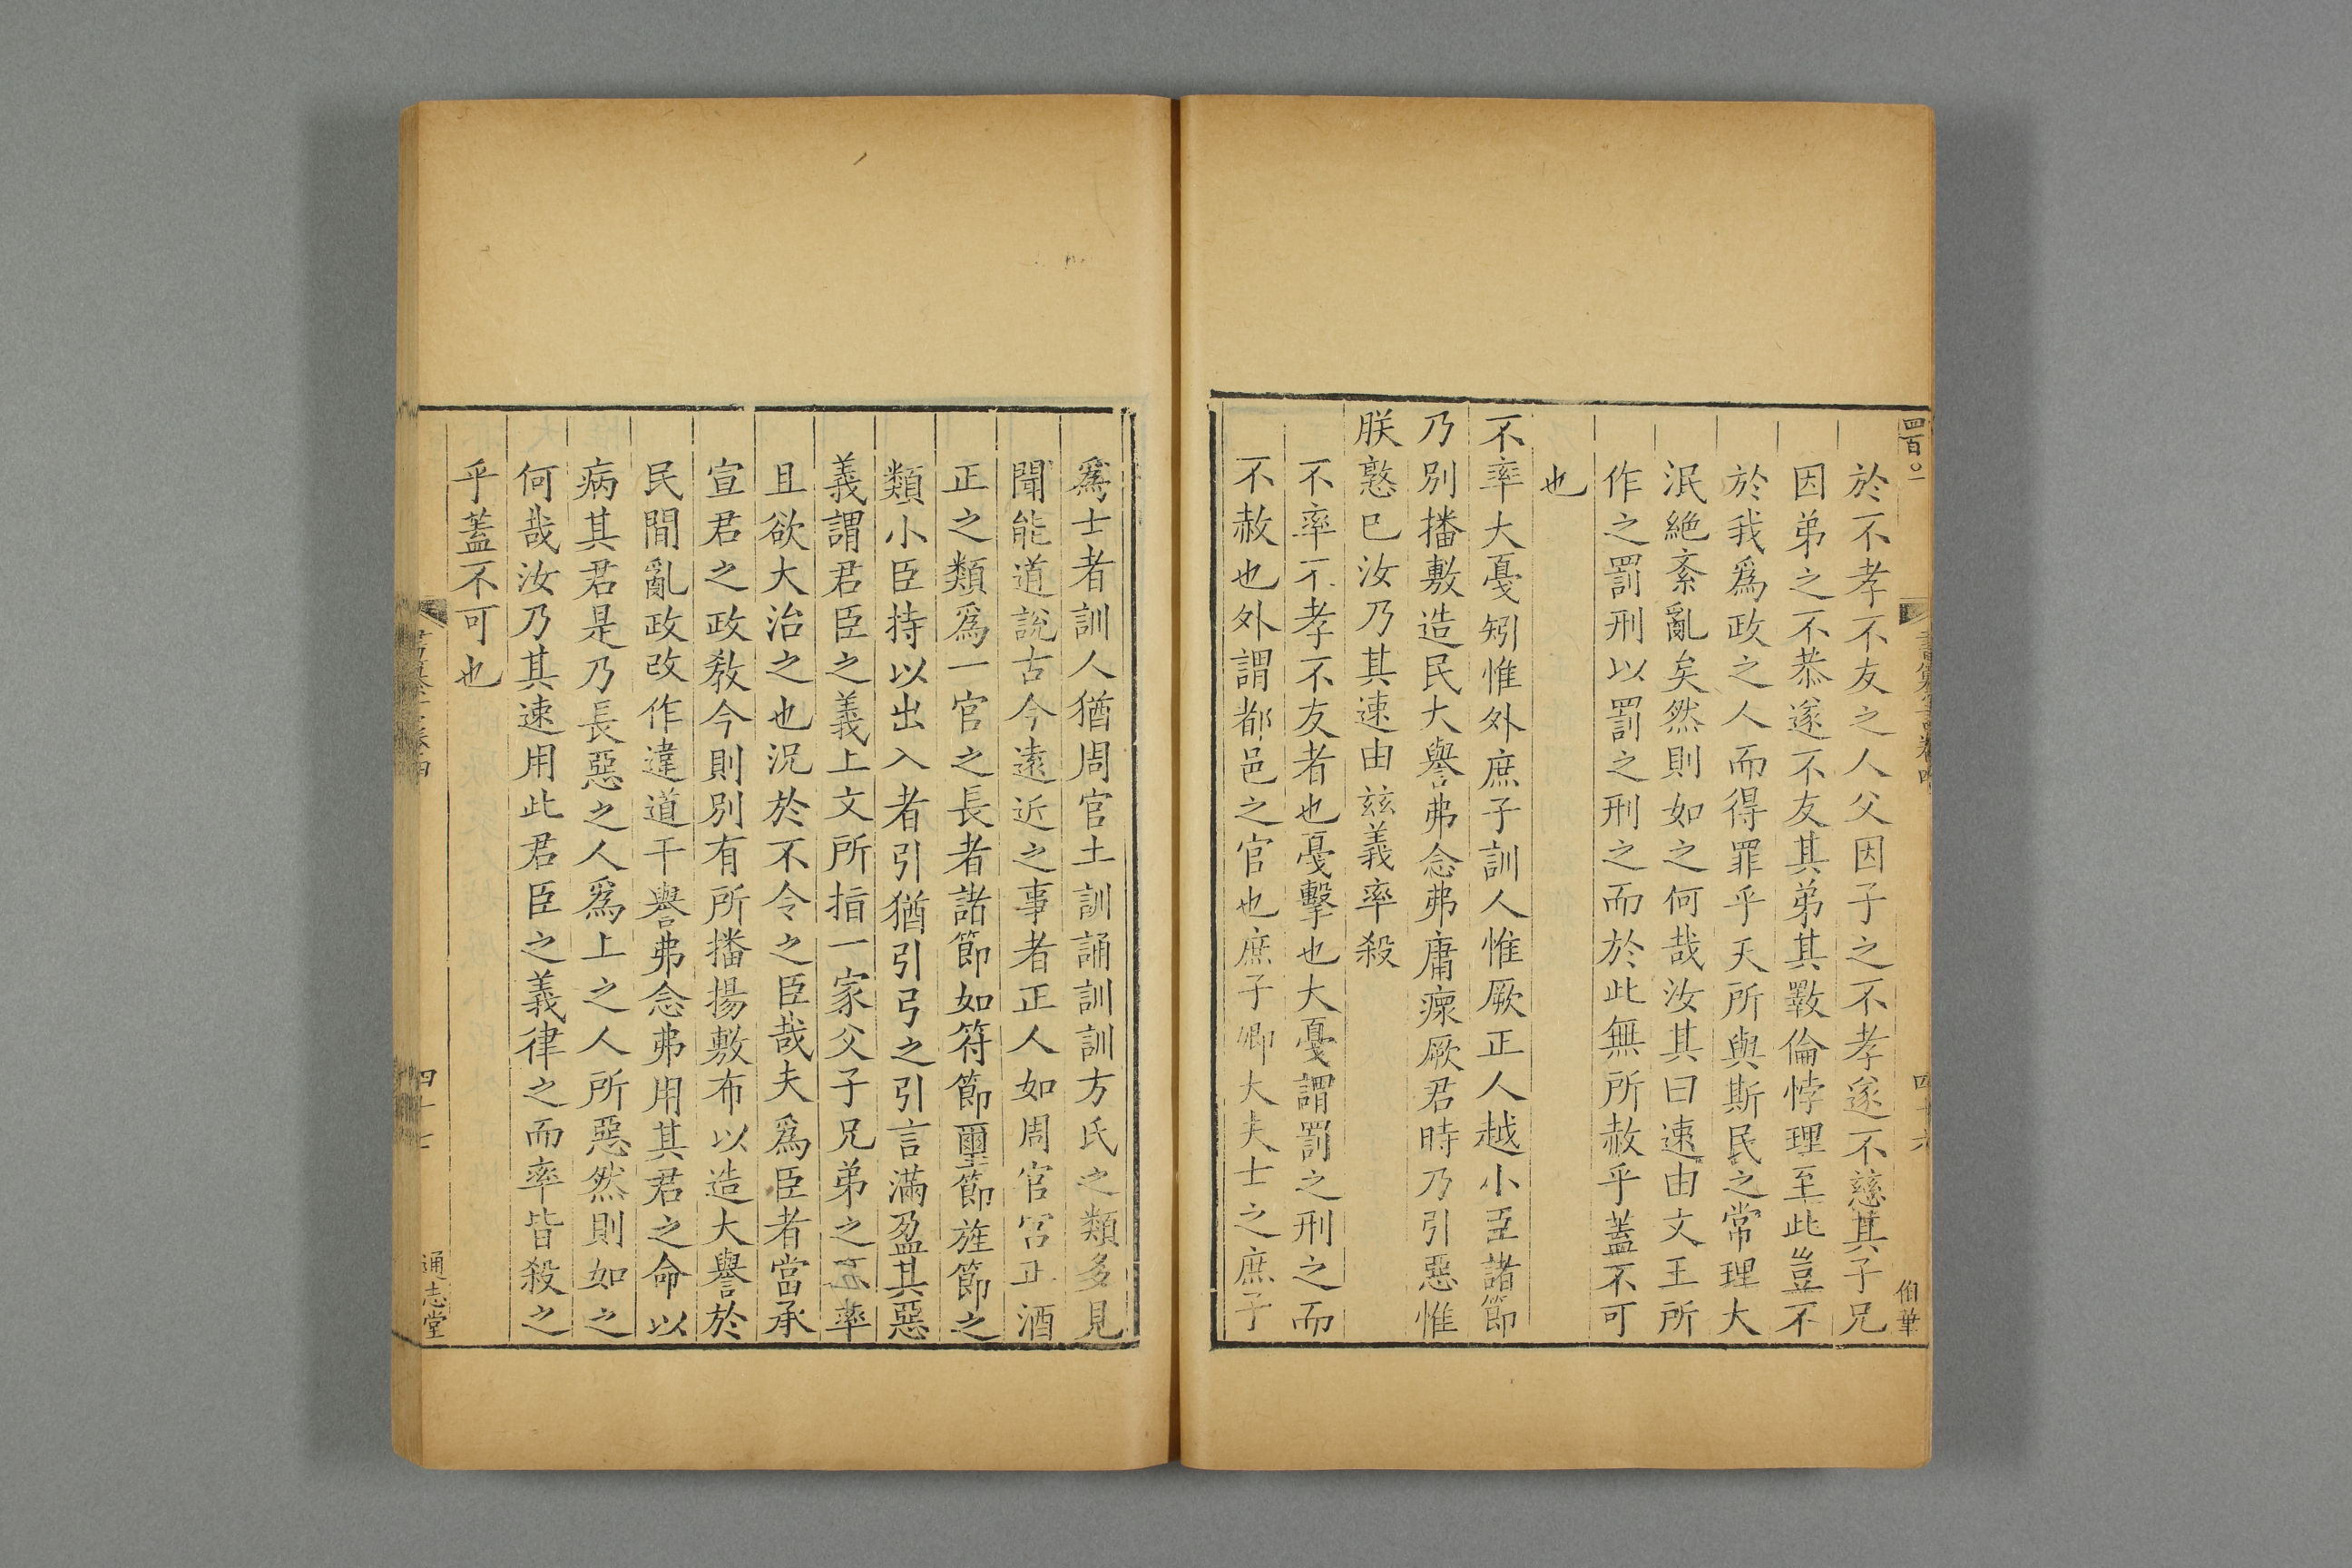 四百〇一
伯華
於不孝不友之人父因子之不孝遂不慈其子兄
因弟之不恭遂不友其弟其斁倫悖理至此豈不
於我爲政之人而得罪乎天所與斯民之常理大
泯絶紊亂矣然則如之何哉汝其曰速由文王所
作之罰刑以罰之刑之而於此無所赦乎蓋不可
也
不率大戛矧惟外庶子訓人惟厥正人越小臣諸節
乃別播敷造民大譽弗念弗庸瘝厥君時乃引惡惟
朕憝已汝乃其速由玆義率殺
不率不孝不友者也戛擊也大戛謂罰之刑之而
不赦也外謂都邑之官也庶子卿大夫士之庶子
爲士者訓人猶周官土訓誦訓訓方氏之類多見
聞能道說古今遠近之事者正人如周官宮正酒
正之類爲一官之長者諸節如符節璽節旌節之
類小臣持以出入者引猶引弓之引言滿盈其惡
義謂君臣之義上文所指一家父子兄弟之不率
且欲大治之也況於不令之臣哉夫爲臣者當承
宣君之政敎今則別有所播揚敷布以造大譽於
民間亂政改作違道干譽弗念弗用其君之命以
病其君是乃長惡之人爲上之人所惡然則如之
何哉汝乃其速用此君臣之義律之而率皆殺之
乎蓋不可也
四十七
通志堂